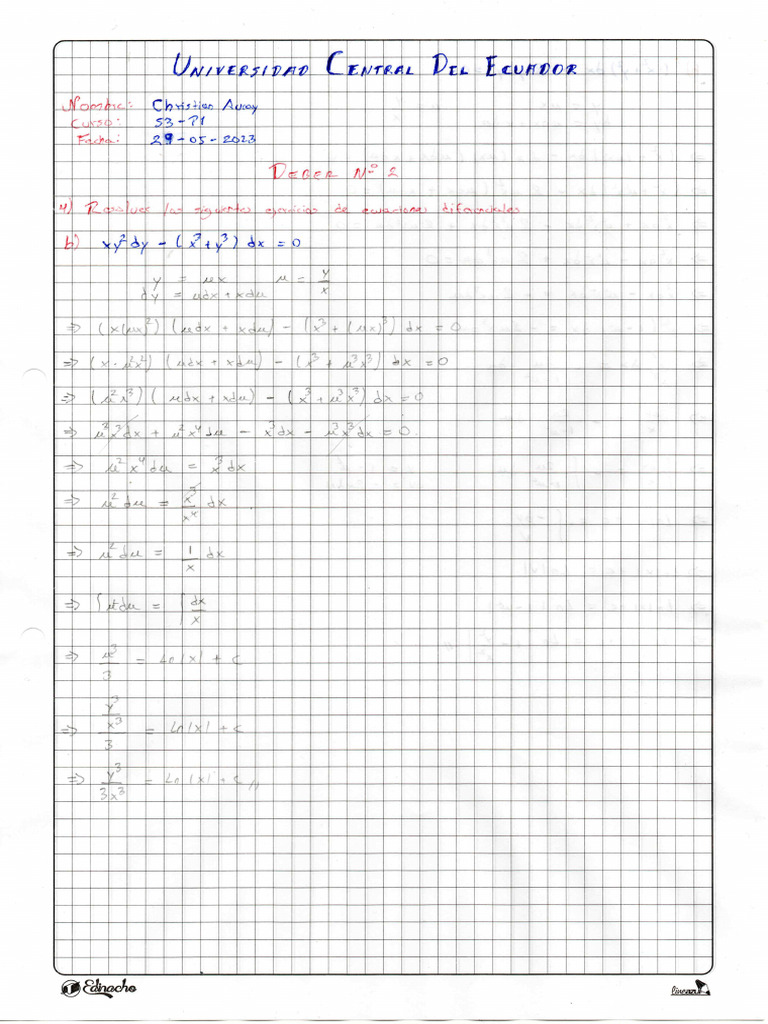 UNIVERSIDAD CENTRAL DEL ECUADOR
Nombre: Christian
Curso: S3-P1
Fecha: 29-05-2023
DEBER Nº 2
4) Resolver los siguientes ejercicios de ecuaciones diferenciales
b) xy² dy - (x³+y³) dx = 0
y = ux u = y/x
dy = udx + xdu
⇒ (x(ux)²) (udx + xdu) - (x³ + (ux)³) dx = 0
⇒ (x · u²x²) (udx + xdu) - (x³ + u³x³) dx = 0
⇒ (u²x³) ( udx + xdu) - (x³ + u³x³) dx = 0
⇒ u³x³dx + u²x⁴du - x³dx - u³x³dx = 0.
⇒ u²x⁴du = x³dx
⇒ u²du = x³/x⁴ dx
⇒ u²du = 1/x dx
⇒ ∫u²du = ∫dx/x
⇒ u³/3 = Ln|x| + c
⇒ (y³/x³)/3 = Ln|x| + c
⇒ y³/3x³ = Ln|x| + c //
Edinacho
lineazul